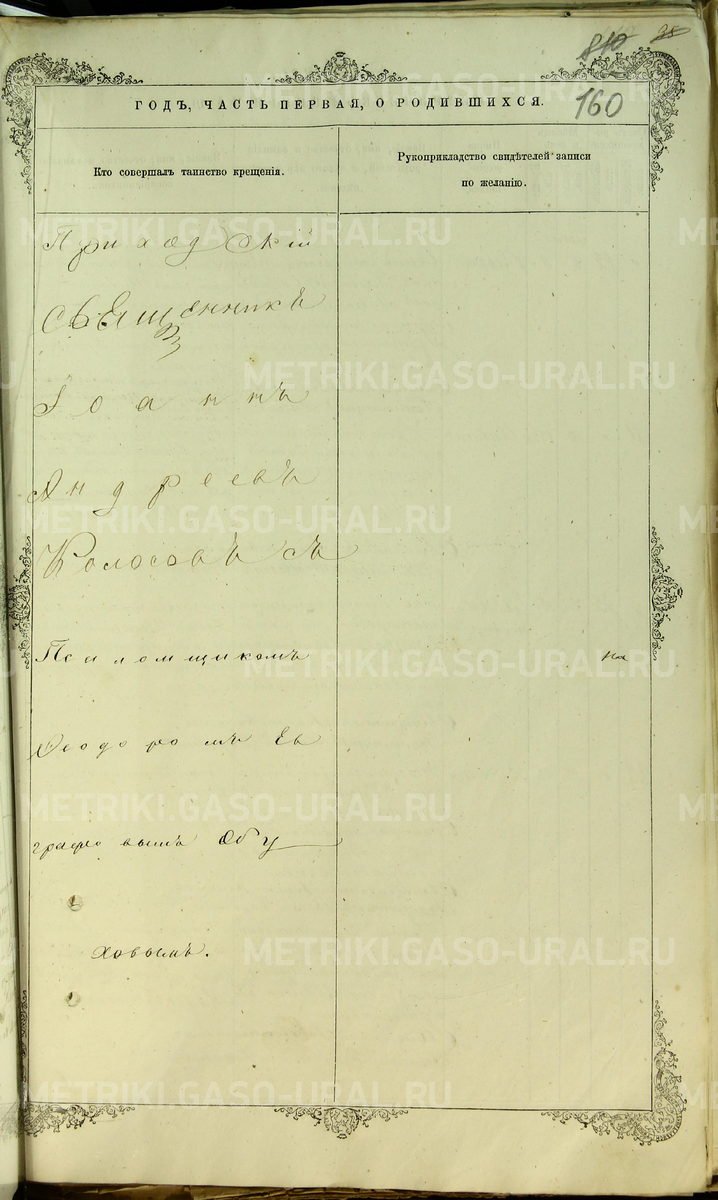 810 28
160
ГОДЪ, ЧАСТЬ ПЕРВАЯ, О РОДИВШИХСЯ.
Кто совершалъ таинство крещенія.
Рукоприкладство свидѣтелей записи
по желанію.
Приходскій
Священникъ
Іоаннъ
Андреевъ
Колосовъ съ
Псаломщикомъ
на
Ѳеодоромъ Ев
графовымъ Обу
ховымъ.
METRIKI.GASO-URAL.RU